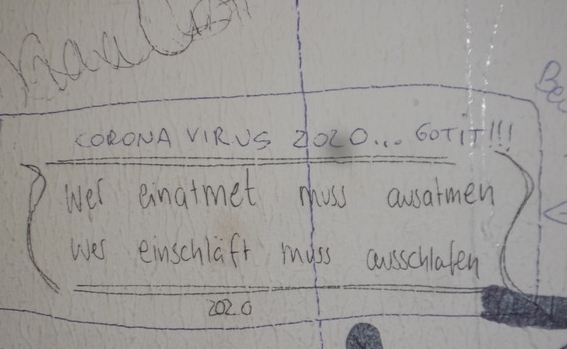 CORONA VIRUS 2020... GOTIT!!!
Wer einatmet muss ausatmen
Wer einschläft muss ausschlafen
2020